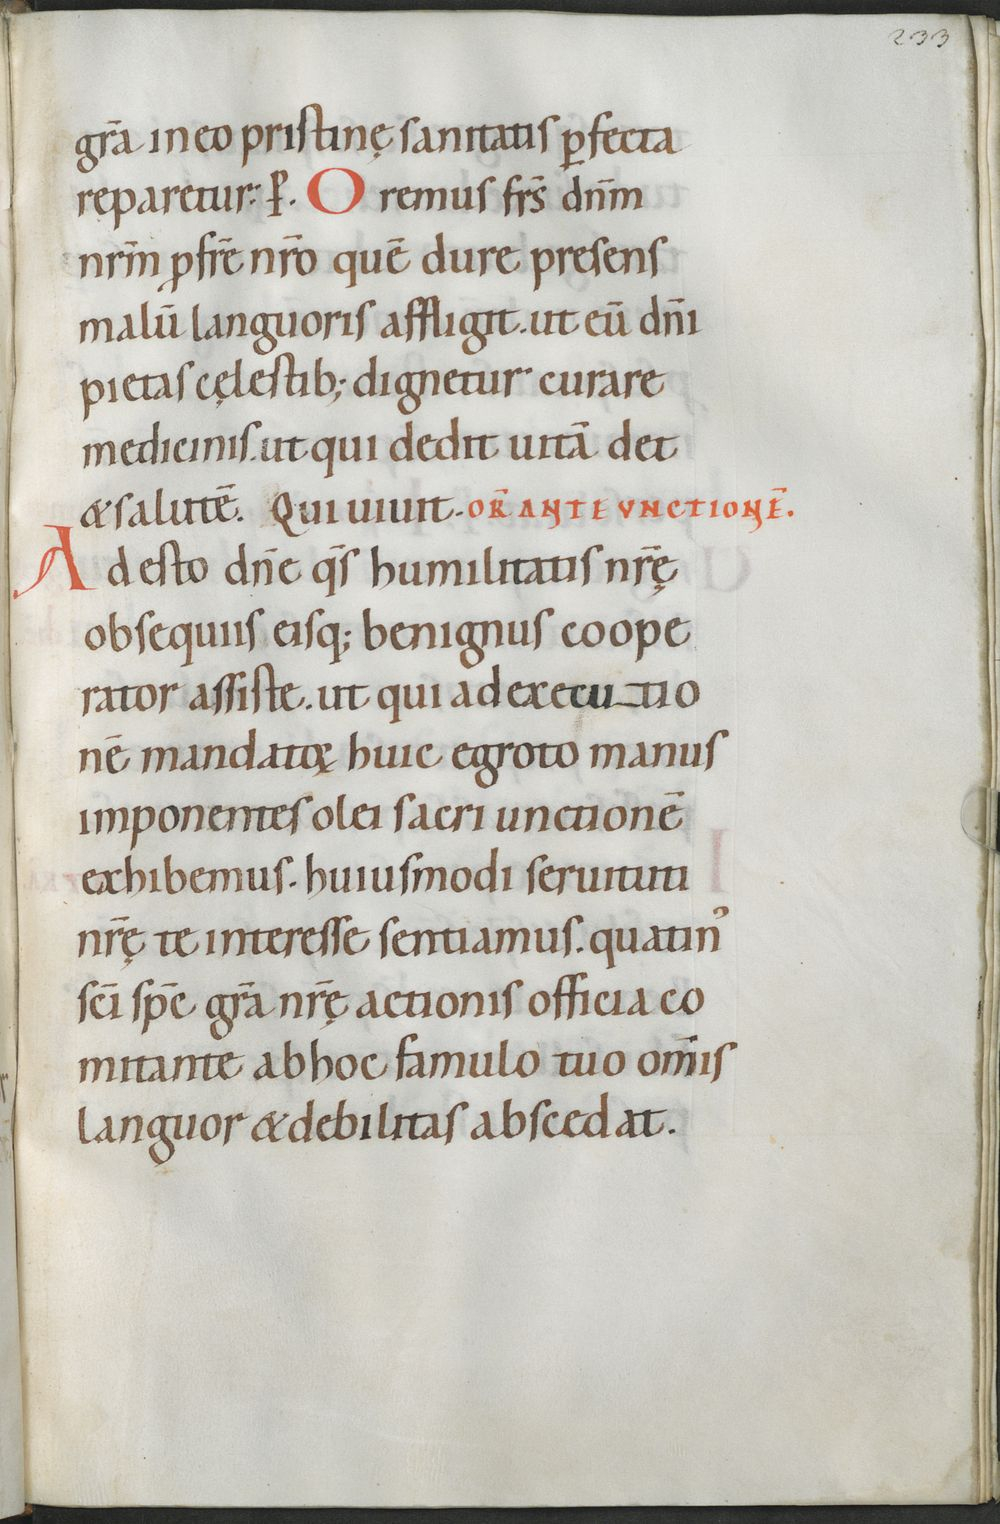 233
gr̄a in eo pristinę sanitatis ꝑfecta
reparetur: P̄. Oremus fr̄s dn̄m
nr̄m ꝓ fr̄e nr̄o quē dure presens
malū languoris affligit. ut eū dn̄i
pietas cęlestib; dignetur curare
medicinis. ut qui dedit uitā det
& salutē. Qui uiuit. OR̄ ANTE VNCTIONĒ.
Adesto dn̄e q̄s humilitatis nr̄ę
obsequiis eisq; benignus coope
rator assiste. ut qui ad execu_tio
nē mandatoꝝ huic egroto manus
imponentes olei sacri unctionē
exhibemus. huiusmodi seruituti
nr̄ę te interesse sentiamus. quatin᾽
sc̄i sp̄c gr̄a nr̄ę actionis officia co
mitante ab hoc famulo tuo om̄is
languor & debilitas abscedat.